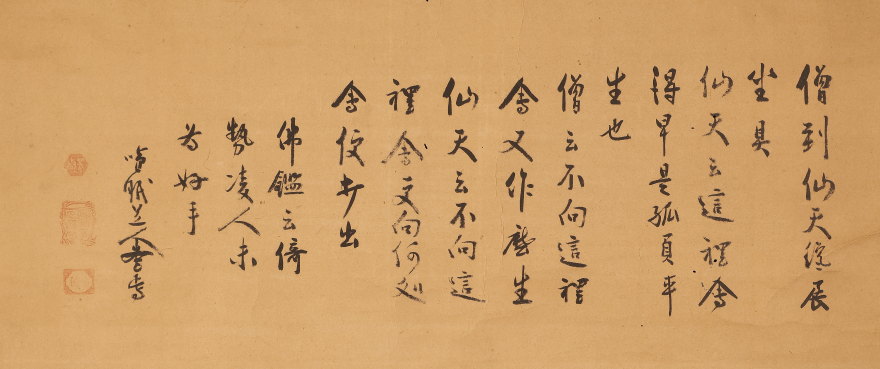 僧到仙天纔展
坐具
仙天云這裡會
得早是孤負平
生也
僧云不向這裡
會又作麼生
仙天云不向這
裡會更向何処
會便打出
佛鑑云倚
勢凌人未
為好手